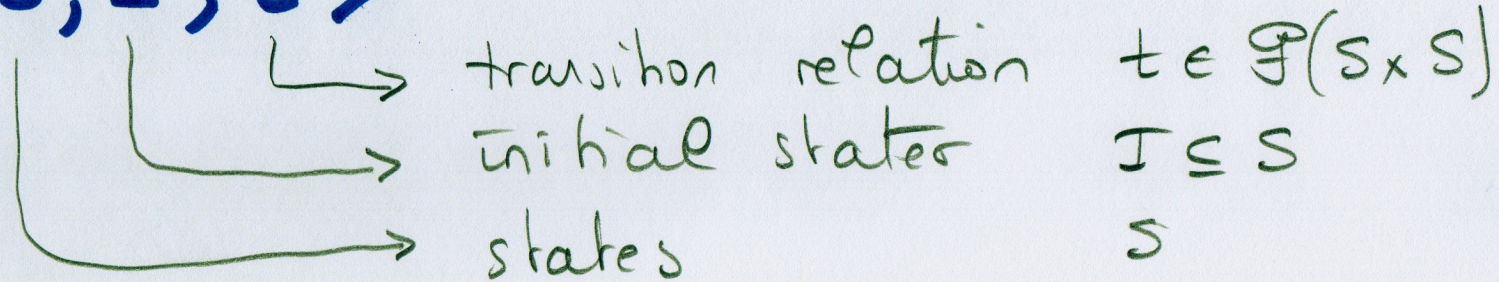 transition relation t ∈ ℘(S × S)
initial states I ⊆ S
states S